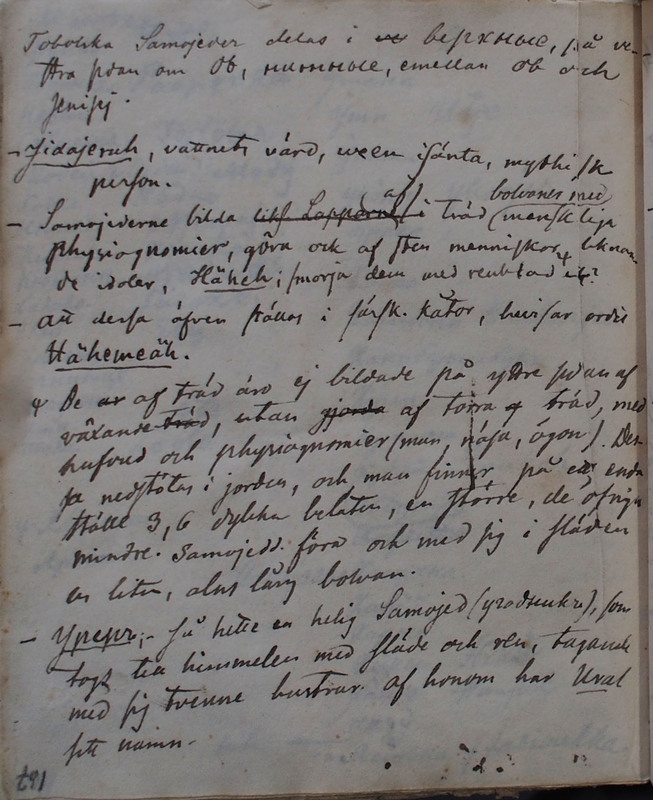 Tobolska Samojeder delas i беркные, på ve-
stra sidan om Ob, нитные, emellan Ob och
Jenisej.
– Jidajeruh, vattnets värd, ween isänta, mythisk
person.
– Samojederne bilda likf. Lapparne af i träd (bolvanes med menskliga
physiognomier, göra ock af sten menniskor liknan-
de idoler, Häheh; smorja dem med renblod etc?
– att dessa äfven ställas i särsk. kåtor, bevisar ordet
Hähemeäh.
De ar af träd äro ej bildade på yttre sidan af
växande träd, utan gjorda af torra träd, med
hufvud och physiognomier (mun, näsa, ögon). Des-
sa nedstötas i jorden, och man finner på ett enda
ställe 3, 6 dylika beläten, en större, de öfriga
mindre. Samojedd. föra och med sig i släden
en liten, alns lång bolvan.
– Урерг; – så hette en helig Samojed (), som
togs till himmelen med släde och ren, tagande
med sig tvenne hustrur. af honom har Ural
sitt namn.
167